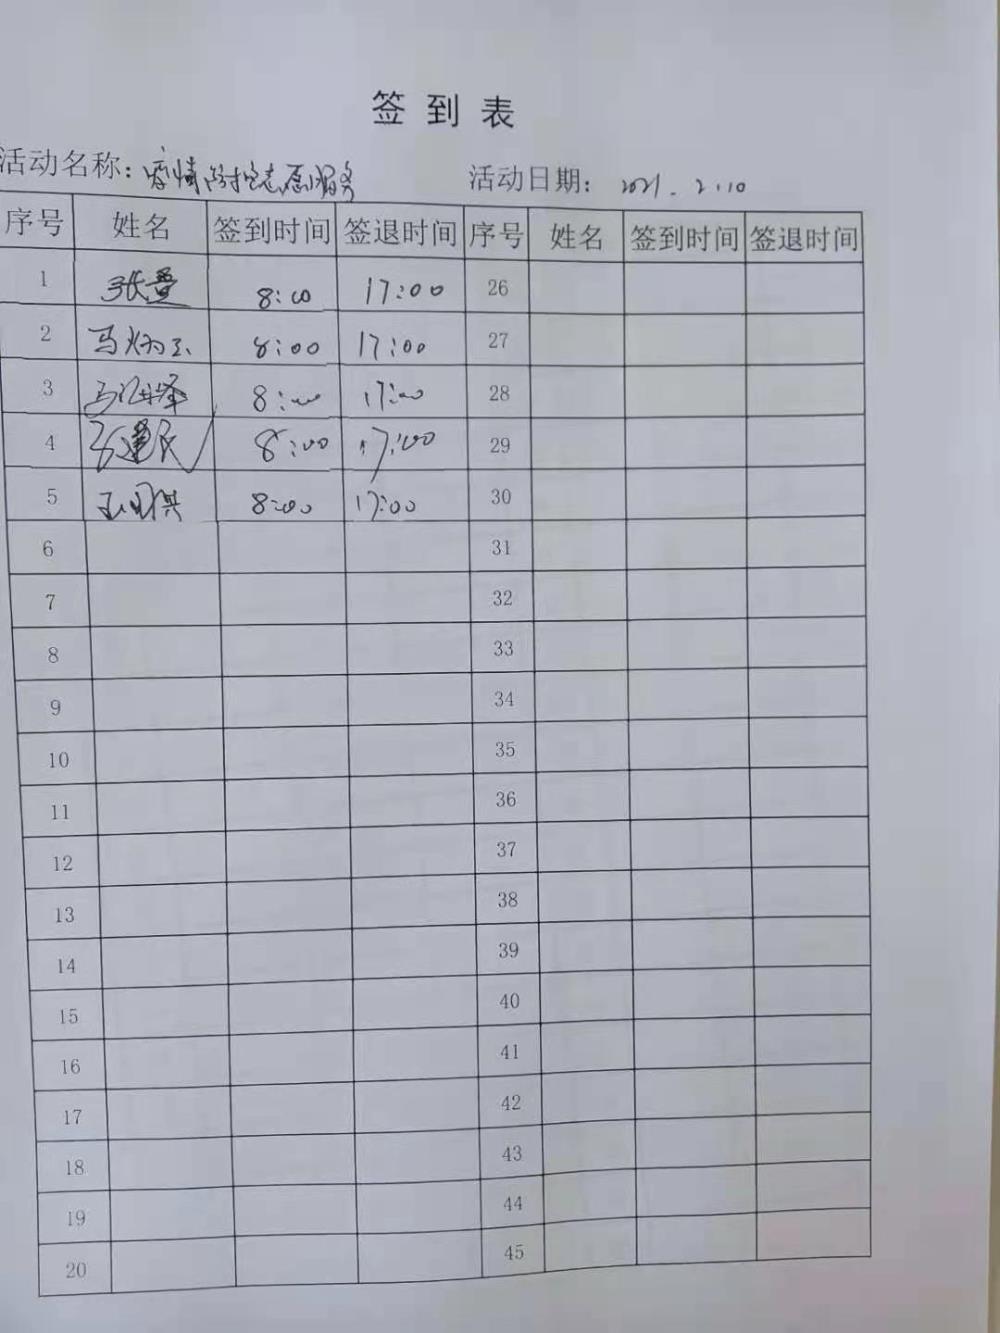 签到表
活动名称：疫情防控志愿服务 活动日期： 2021.2.10
序号 姓名 签到时间 签退时间 序号 姓名 签到时间 签退时间
1 8:00 17:00 26
2 马炳玉 8:00 17:00 27
3 8:00 17:00 28
4 8:00 17:00 29
5 8:00 17:00 30
6 31
7 32
8 33
9 34
10 35
11 36
12 37
13 38
14 39
15 40
16 41
17 42
18 43
19 44
20 45